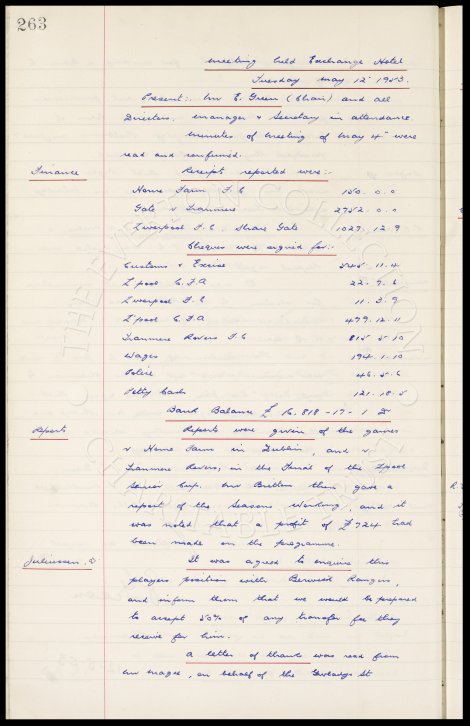 263
Meeting held Exchange Hotel
Tuesday May 12th 1953.
Present:. Mr E. Green (Chair) and all
Directors. Manager & Secretary in attendance
Minutes of meeting of May 4th were
read and confirmed.
Finance
Receipts reported were:-
Home Farm F.C 150. 0. 0
Gate v Tranmere 2752. 0. 0
Liverpool F.C. Share Gate 1027. 12. 9
Cheques were signed for:-
Customs & Excise 545. 11. 4
L'pool C.F.A 22. 7. 6
Liverpool F.C 11. 3. 9
L'pool C.F.A 479. 12. 11
Tranmere Rovers F.C 815. 5. 10
Wages 194. 1. 10
Police 46. 5. 6
Petty Cash 121. 18. 5
Bank Balance £ 16, 818 - 17 - 1
Reports
Reports were given of the games
v Home Farm in Dublin, and v
Tranmere Rovers, in the Final of the L'pool
Senior Cup. Mr Britton then gave a
report of the Seasons Working, and it
was noted that a profit of £724 had
been made on the programme.
Juliussen, A
It was agreed to enquire this
players position with Berwick Rangers,
and inform them that we would be prepared
to accept 50% of any transfer fee they
receive for him.
A letter of thanks was read from
Mr Magee, on behalf of the Gwladys St
THE EVERTON COLLECTION
CHARITABLE TRUST